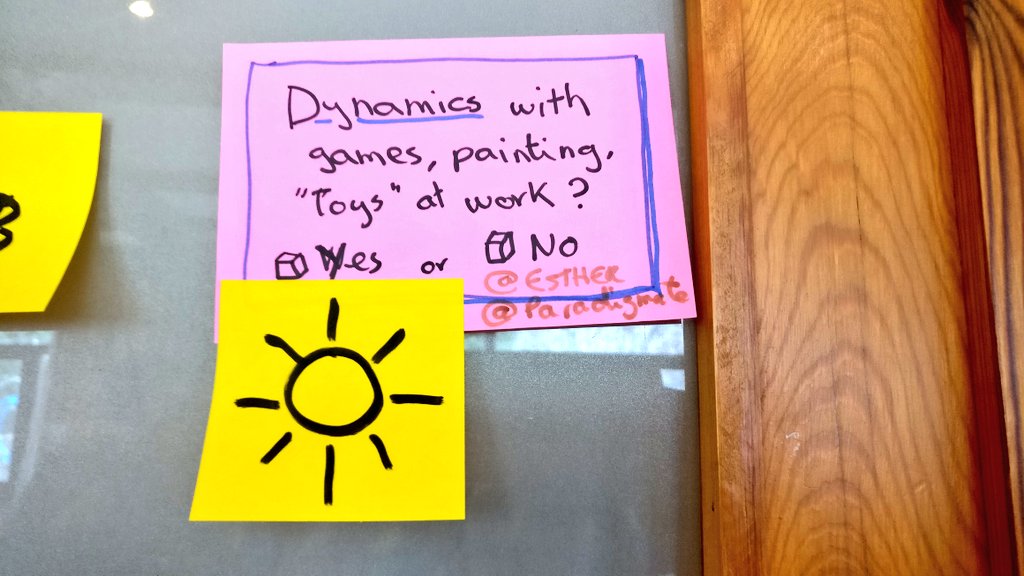 Dynamics with
games, painting,
"Toys" at work?
Yes or No
@ESTHER
@Paradigmate